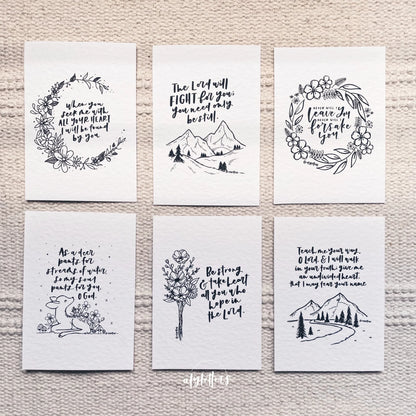 When you
seek me with
ALL YOUR HEART
I will be found
by you.
The Lord will
FIGHT for you;
you need only
be still.
NEVER WILL I
leave you
NEVER WILL I
forsake
you
As a deer
pants for
streams of water,
so my soul
pants for you,
O God.
Be strong
& take heart
all you who
hope in
the Lord.
Teach me your way,
O Lord, & I will walk
in your truth; give me
an undivided heart,
that I may fear your name.